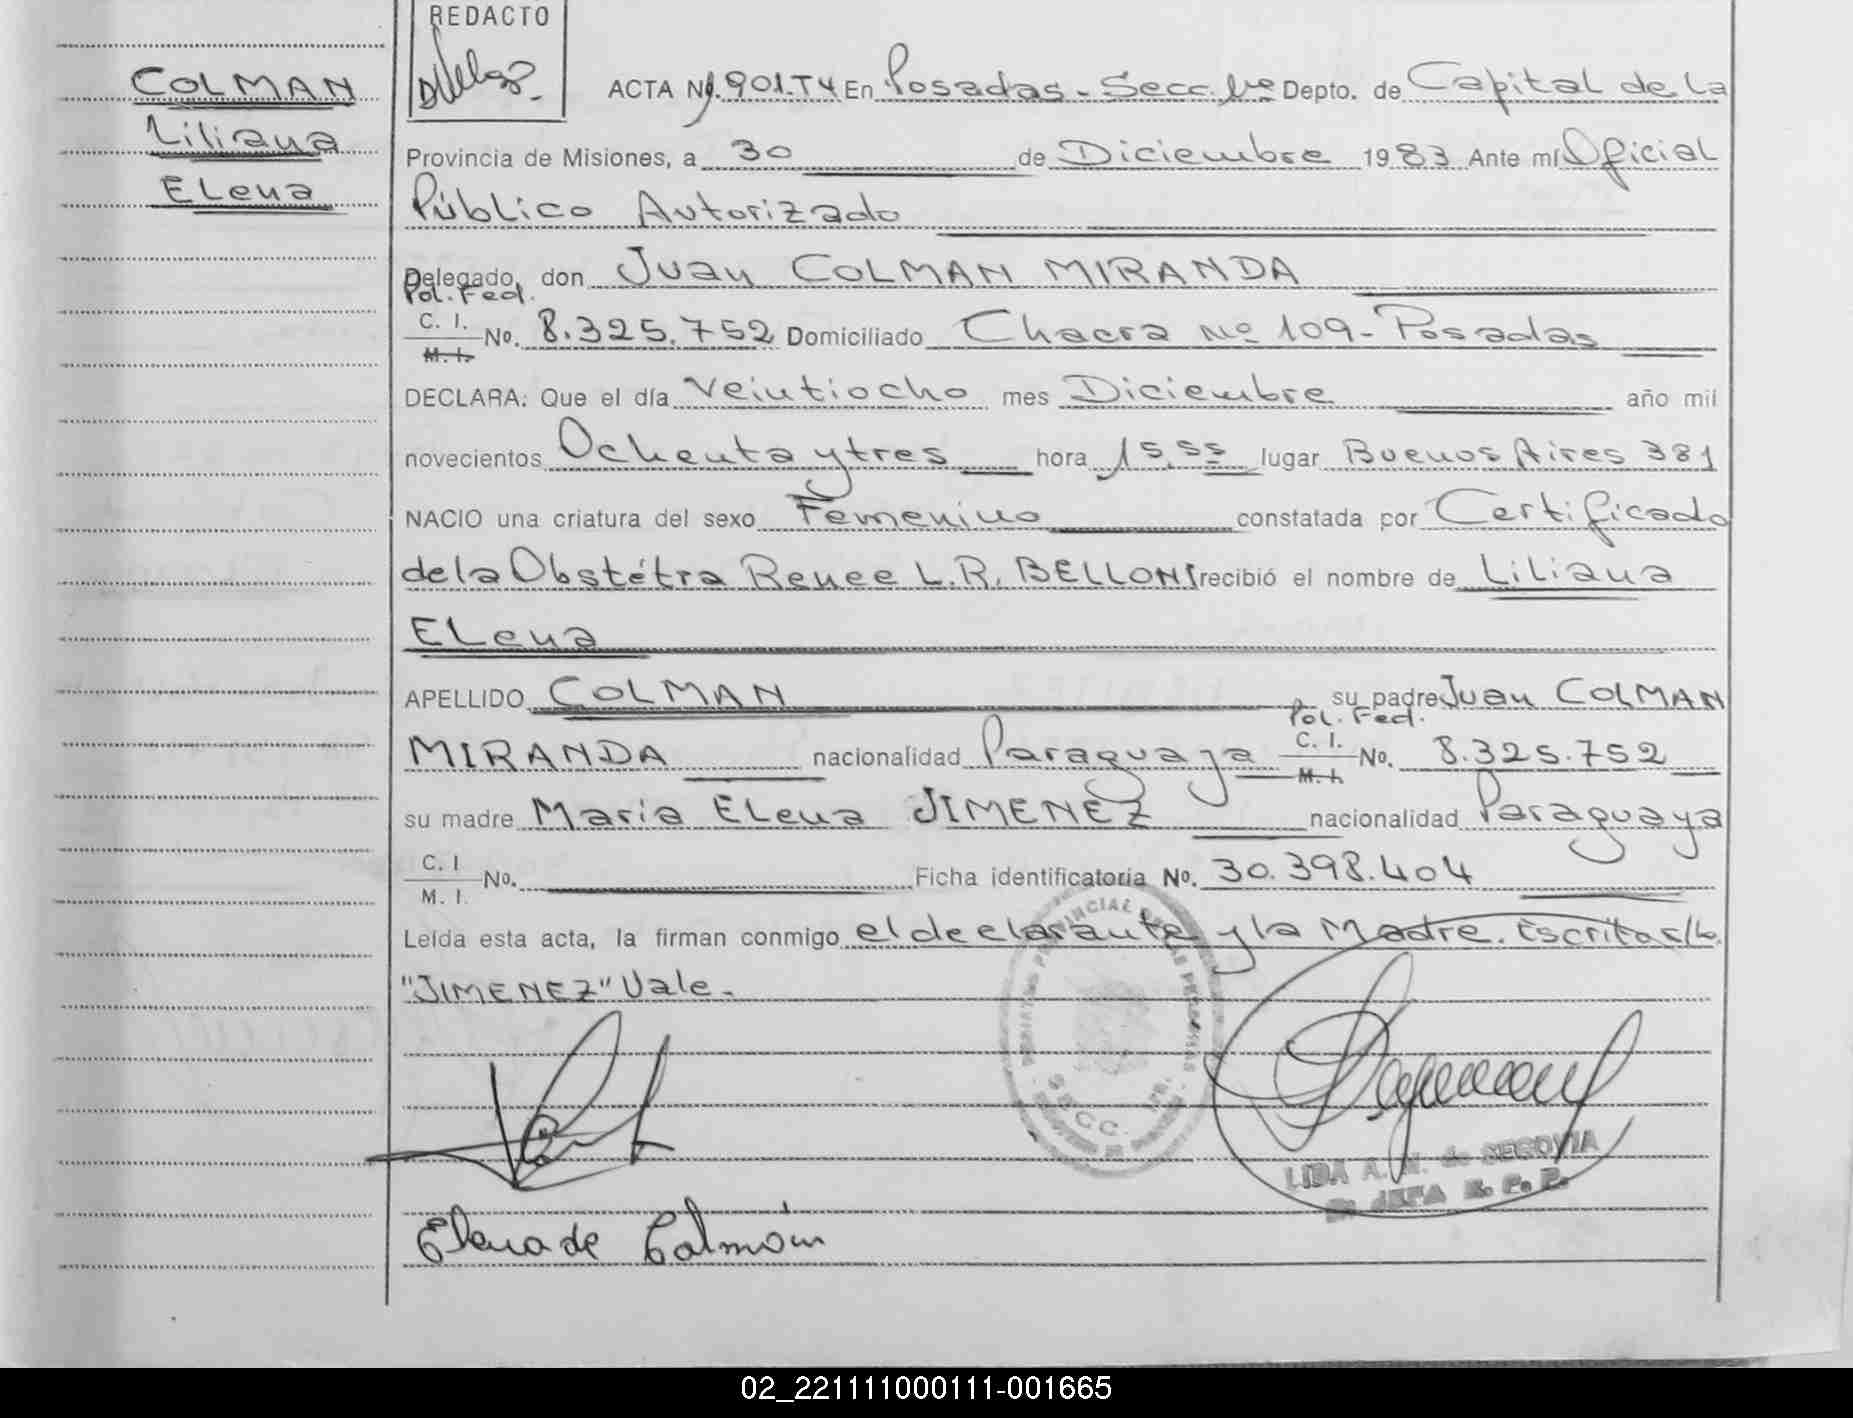 REDACTO
COLMAN
Liliana
Elena
ACTA Nº 1.901.T4 En Posadas - Secc. 1ra Depto. de Capital de la
Provincia de Misiones, a 30 de Diciembre 1983 Ante mí Oficial
Público Autorizado
Delegado, don Juan COLMAN MIRANDA
Pol. Fed.
C. I.
M. I. No. 8.325.752 Domiciliado Chacra Nº 109 - Posadas
DECLARA: Que el día Veintiocho mes Diciembre año mil
novecientos Ochenta y tres hora 15,55 lugar Buenos Aires 381
NACIO una criatura del sexo Femenino constatada por Certificado
de la Obstétra Renee L. R. BELLONI recibió el nombre de Liliana
Elena
APELLIDO COLMAN su padre Juan COLMAN
Pol. Fed.
MIRANDA nacionalidad Paraguaya C. I. M. I. No. 8.325.752
su madre María Elena JIMENEZ nacionalidad Paraguaya
C. I M. I. No. Ficha identificatoria No. 30.398.404
Leída esta acta, la firman conmigo el declarante y la Madre. Escrito s/b.
"JIMENEZ" Vale.
SECC. 1ra.
LIDA A. M. de SEGOVIA
JEFA R. P. P.
Elena de Colmán
02_221111000111-001665